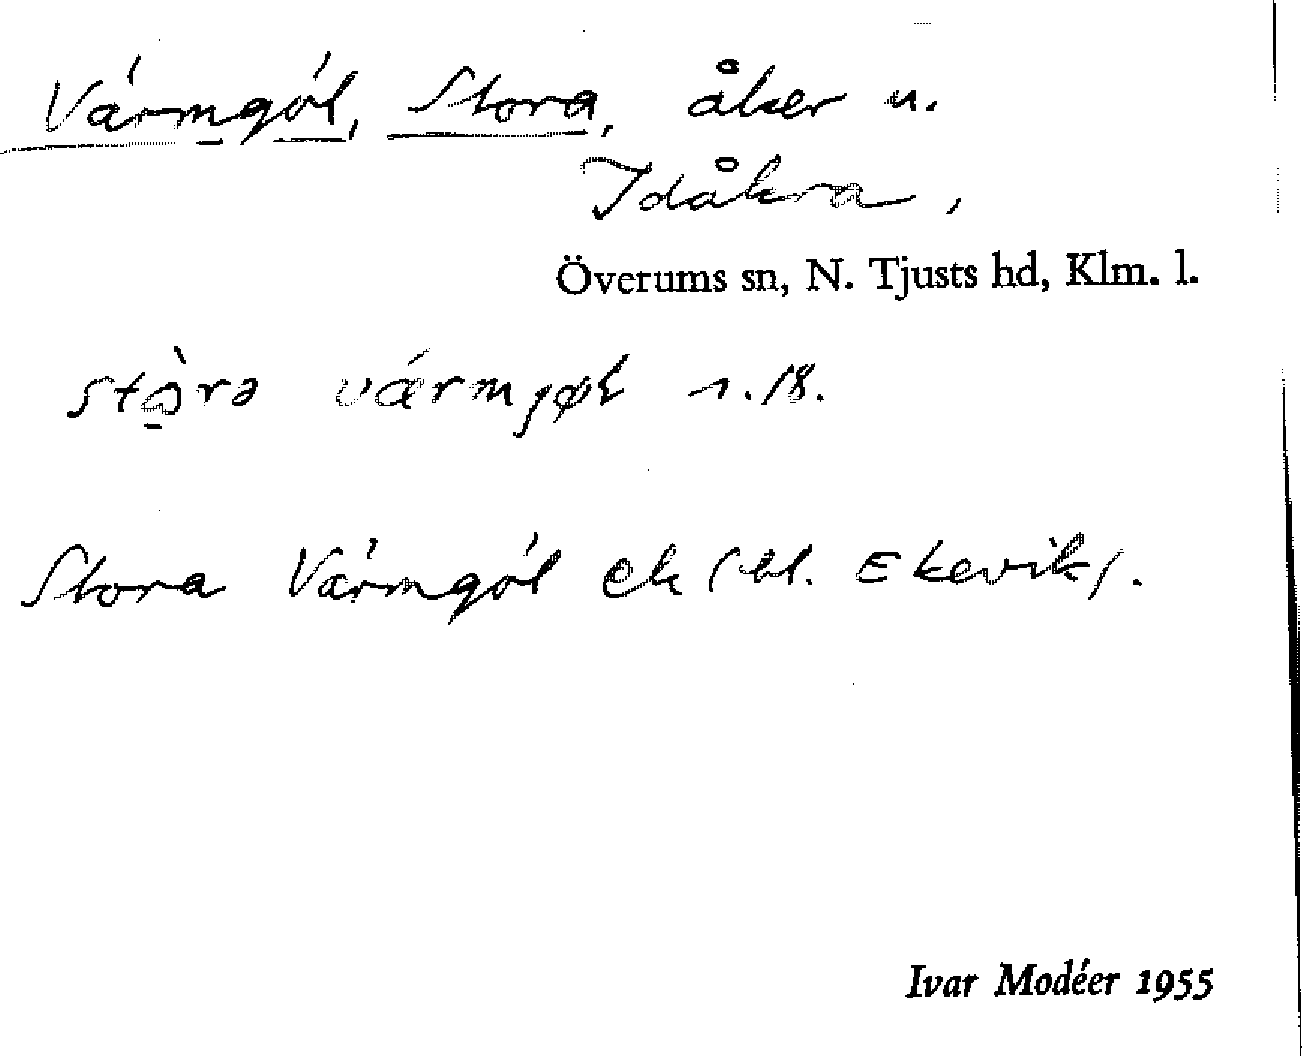 Värmgöl, Stora, åker u.
Idåkra,
Överums sn, N. Tjusts hd, Klm. l.
stɷ̀rə værmjøl 1.18.
Stora Värmgöl ek (bl. Ekevik).
Ivar Modéer 1955